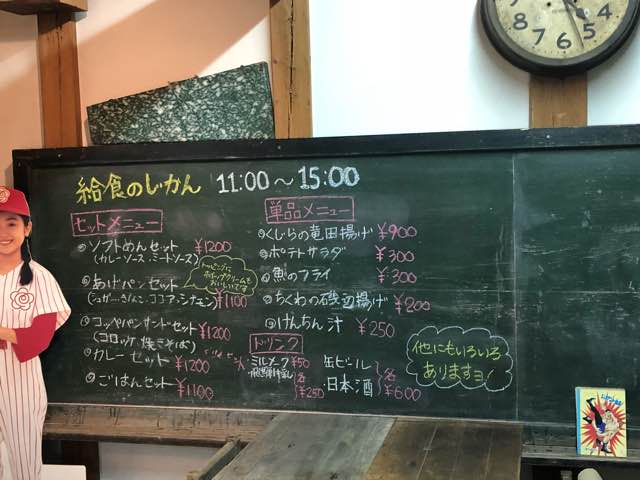 給食のじかん 11:00～15:00
セットメニュー
ソフトめんセット ¥1200
(カレーソース・ミートソース)
あげパンセット ¥1100
(シュガー・きなこ・ココア・シナモン)
コッペパンサンドセット ¥1200
(コロッケ・焼きそば)
カレーセット ¥1200
ごはんセット ¥1100
単品メニュー
くじらの竜田揚げ ¥900
ポテトサラダ ¥300
魚のフライ ¥300
ちくわの磯辺揚げ ¥200
けんちん汁 ¥250
ドリンク
・ミルメーク ¥50
各¥250
缶ビール
・日本酒
各¥600
他にもいろいろ
ありますヨ!
4
5
6
7
8